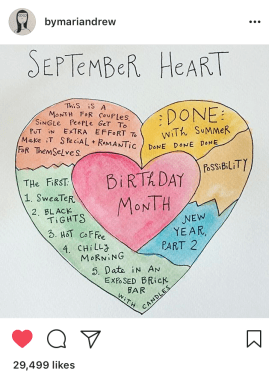 bymariandrew
SEPTEMBER HEART
THIS IS A
MONTH FOR COUPLES.
SINGLE PEOPLE GET TO
PUT IN EXTRA EFFORT TO
MAKE IT SPECIAL + ROMANTIC
FOR THEMSELVES
DONE
WITH SUMMER
DONE DONE DONE
POSSIBILITY
BIRTHDAY
MONTH
THE FIRST:
1. SWEATER
2. BLACK
TIGHTS
3. HOT COFFEE
4. CHILLY
MORNING
5. DATE IN AN
EXPOSED BRICK
BAR
WITH CANDLES
NEW
YEAR,
PART 2
29,499 likes